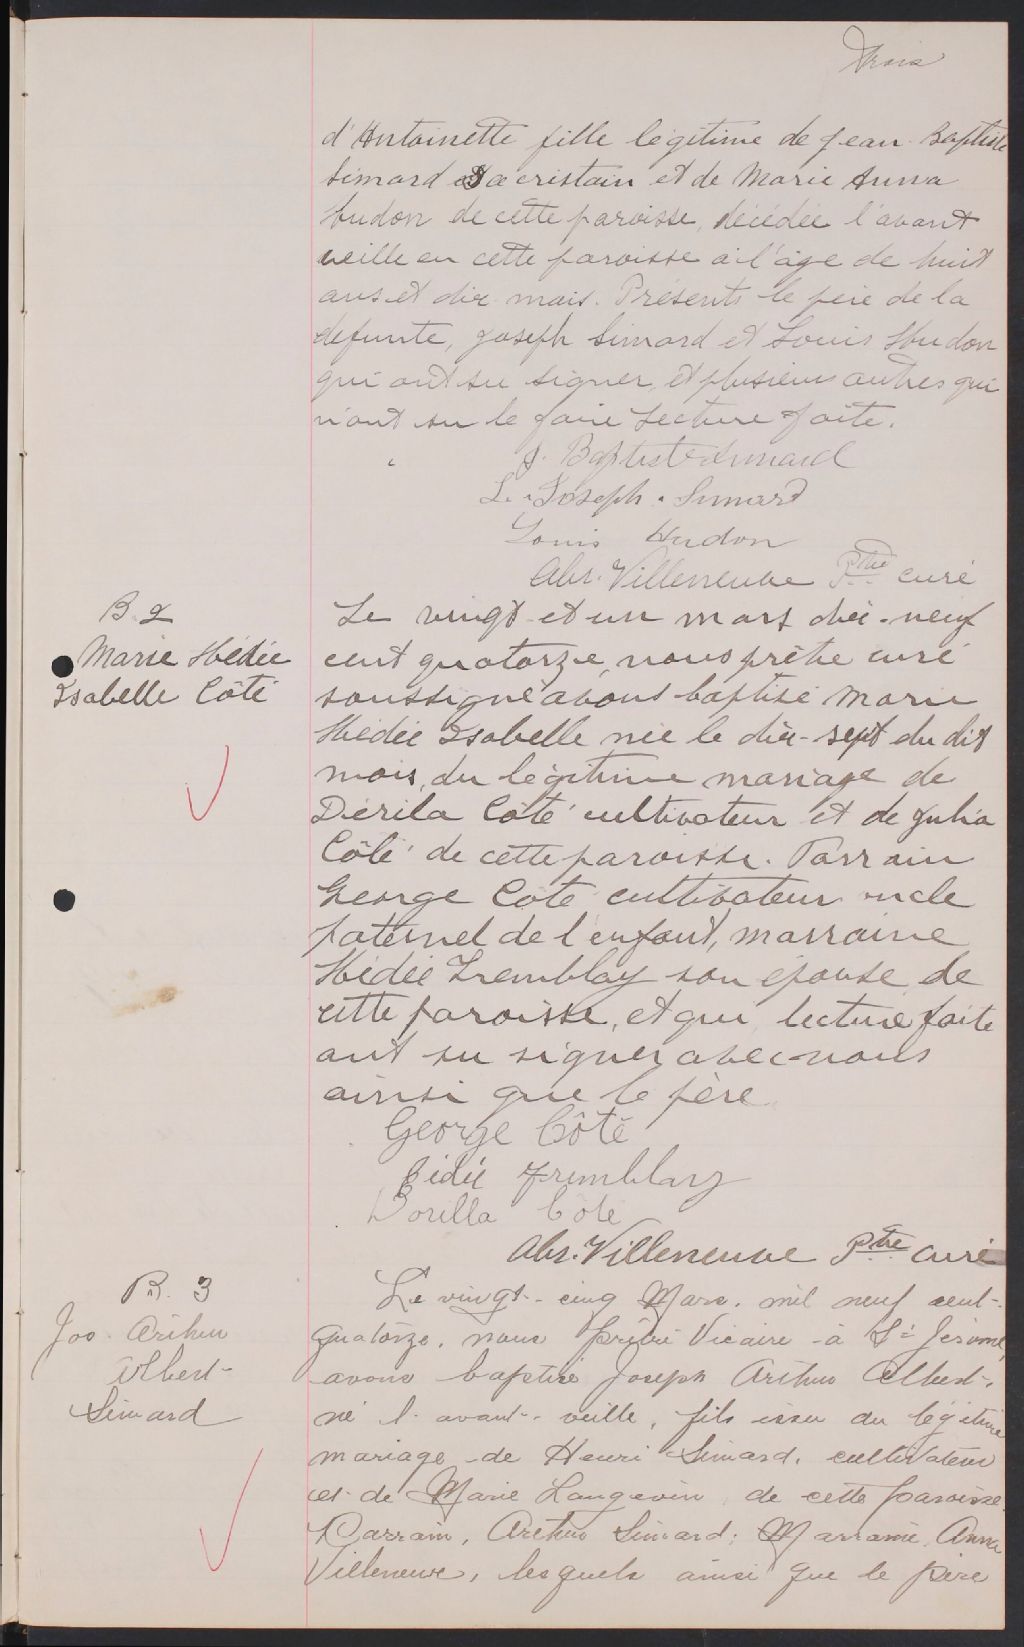 Trois
d'Antoinette fille légitime de Jean-Baptiste
Simard Sacristain et de Marie Anna
Hudon de cette paroisse, décédée l'avant
veille en cette paroisse à l'âge de huit
ans et dix mois. Présents le père de la
défunte, Joseph Simard et Louis Hudon
qui ont su signer, et plusieurs autres qui
n'ont su le faire Lecture faite.
J. Baptiste Simard
L. Joseph. Simard
Louis Hudon
Abr. Villeneuve Ptre curé
B. 2
Marie Hédée
Isabelle Côté
Le vingt-et un mars dix-neuf
cent quatorze, nous prêtre curé
soussigné avons baptisé Marie
Hédée Isabelle née le dix-sept du dit
mois, du légitime mariage de
Dérila Côté cultivateur et de Julia
Côté de cette paroisse. Parrain
George Côté cultivateur oncle
paternel de l'enfant, marraine
Hédée Tremblay son épouse de
cette paroisse, et qui, lecture faite
ont su signer avec nous
ainsi que le père.
George Côté
Hédée Tremblay
Dorilla Côté
Abr. Villeneuve Ptre curé
B. 3
Jos. Arthur
Albert
Simard
Le vingt-cinq Mars, mil neuf cent-
quatorze, nous prêtre Vicaire à St Jérome,
avons baptisé Joseph Arthur Albert,
né l'avant-veille, fils issu du légitime
mariage de Henri Simard, cultivateur
et de Marie Langevin, de cette paroisse.
Parrain, Arthur Simard; Marraine, Anna
Villeneuve, lesquels ainsi que le père